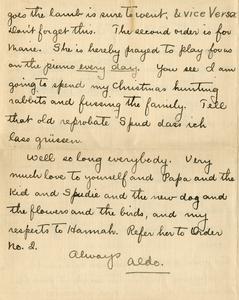 goes the lamb is sure to went, & vice versa.
Don't forget this. The second order is for
Marie. She is hereby prayed to play focus
on the piano every day. You see I am
going to spend my Christmas hunting
rabbits and fussing the family. Tell
that old reprobate Spud dass ich
lass grüssen.
Well so long everybody. Very
much love to yourself and Papa and the
Kid and Spudie and the new dog and
the flowers and the birds, and my
respects to Hannah. Refer her to Order
No. 2.
Always
Aldo.